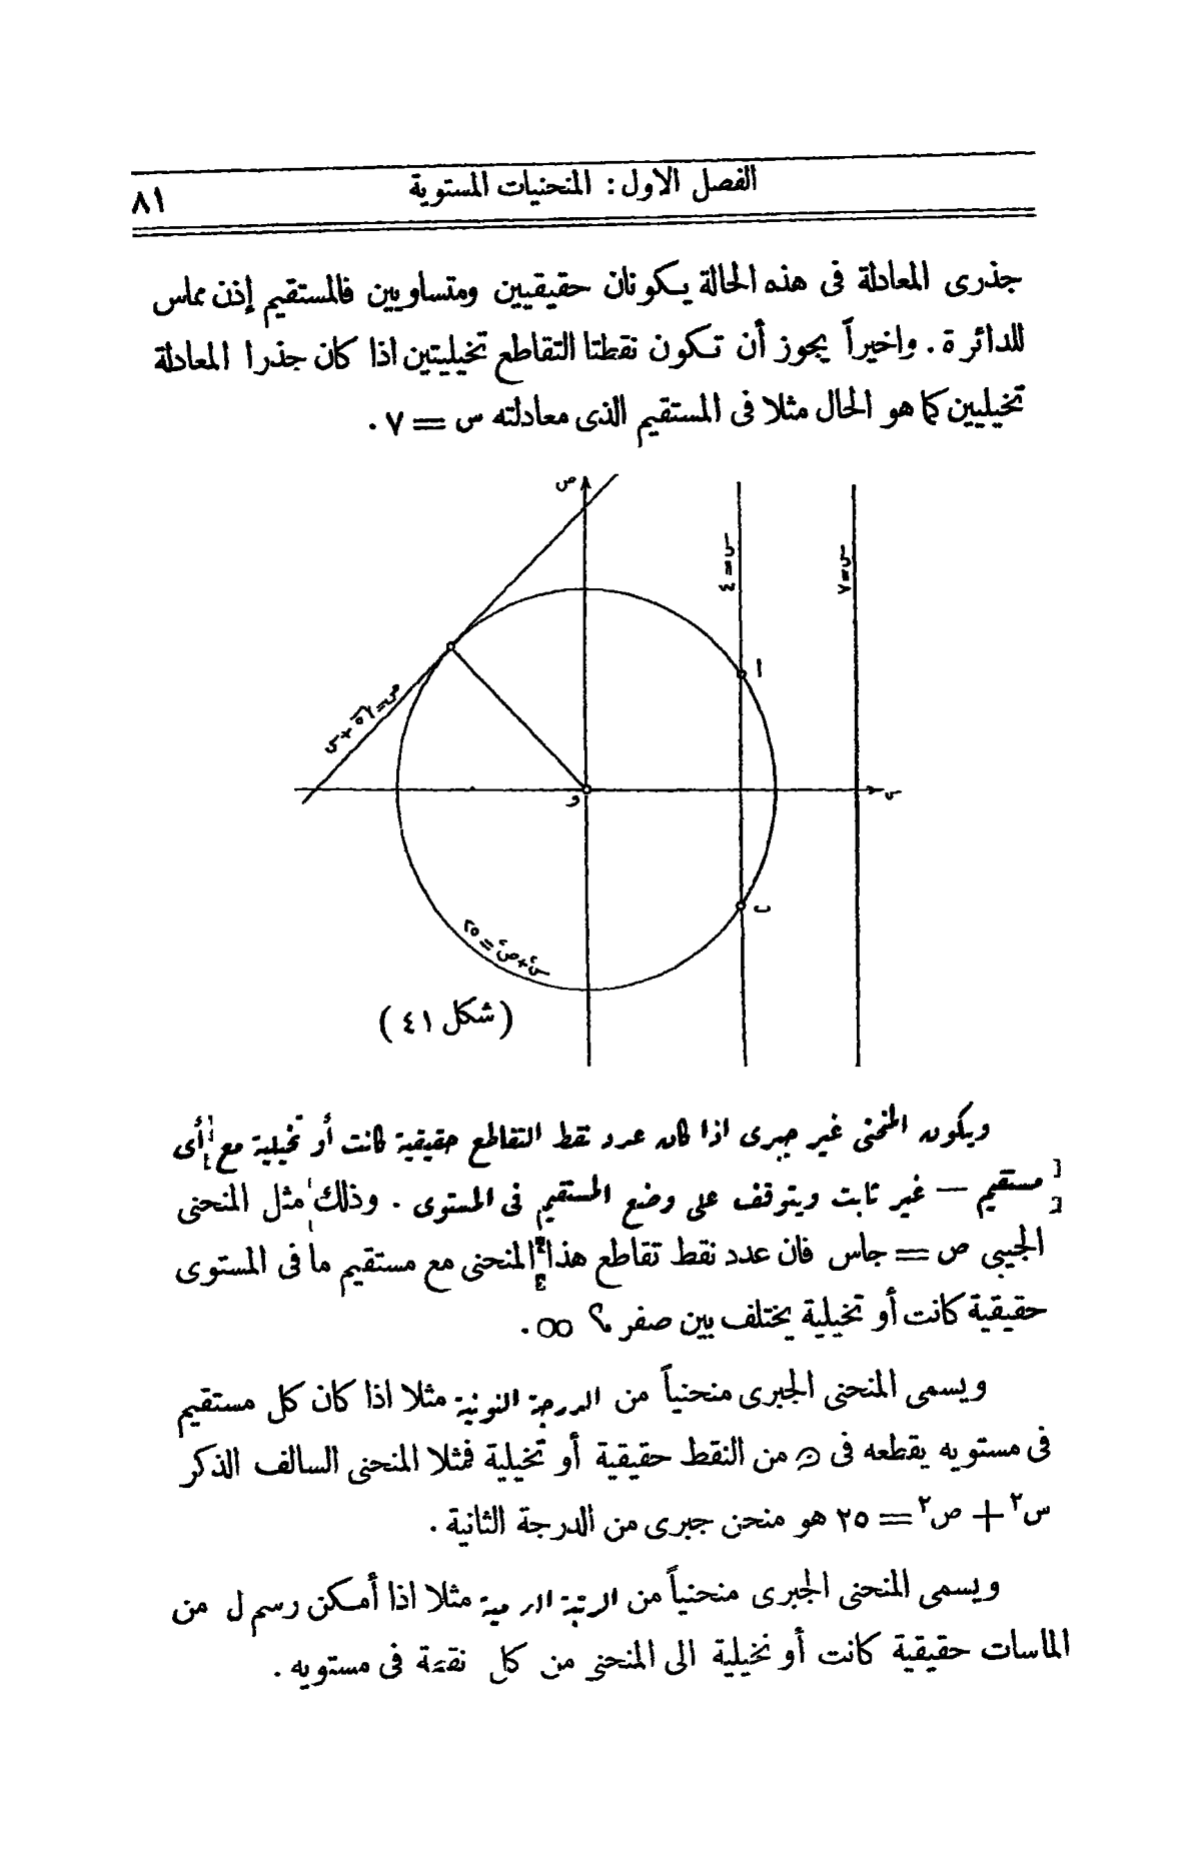 الفصل الاول : المنحنيات المستوية
٨١
جذرى المعادلة فى هذه الحالة يكونان حقيقيين ومتساويين فالمستقيم إذن مماس
للدائرة . واخيراً يجوز أن تكون نقطتا التقاطع تخيليتين اذا كان جذرا المعادلة
تخيليين كما هو الحال مثلا فى المستقيم الذى معادلته س = ٧ .
ص
س = ٤
س = ٧
ا
و
س
ب
س٢ + ص٢ = ٢٥
( شكل ٤١ )
ويكون المنحنى غير جبرى اذا كان عدد نقط التقاطع حقيقية كانت أو تخيلية مع أى
مستقيم — غير ثابت ويتوقف على وضع المستقيم فى المستوى . وذلك مثل المنحنى
الجيبى ص = جاس فان عدد نقط تقاطع هذا المنحنى مع مستقيم ما فى المستوى
حقيقية كانت أو تخيلية يختلف بين صفر ؟ ∞ .
ويسمى المنحنى الجبرى منحنياً من الدرجة النونية مثلا اذا كان كل مستقيم
فى مستويه يقطعه فى ن من النقط حقيقية أو تخيلية فمثلا المنحنى السالف الذكر
س٢ + ص٢ = ٢٥ هو منحن جبرى من الدرجة الثانية .
ويسمى المنحنى الجبرى منحنياً من الرتبة مثلا اذا أمكن رسم ل من
الماسات حقيقية كانت أو تخيلية الى المنحنى من كل نقطة فى مستويه .